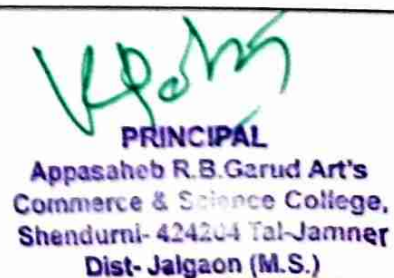 PRINCIPAL
Appasaheb R.B.Garud Art's
Commerce & Science College,
Shendurni- 424204 Tal-Jamner
Dist- Jalgaon (M.S.)